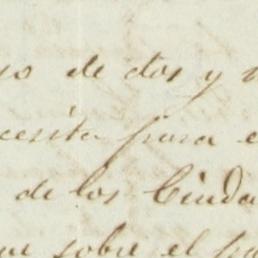 so de dos y
cesita para e
de los Ciuda
ue sobre el pa